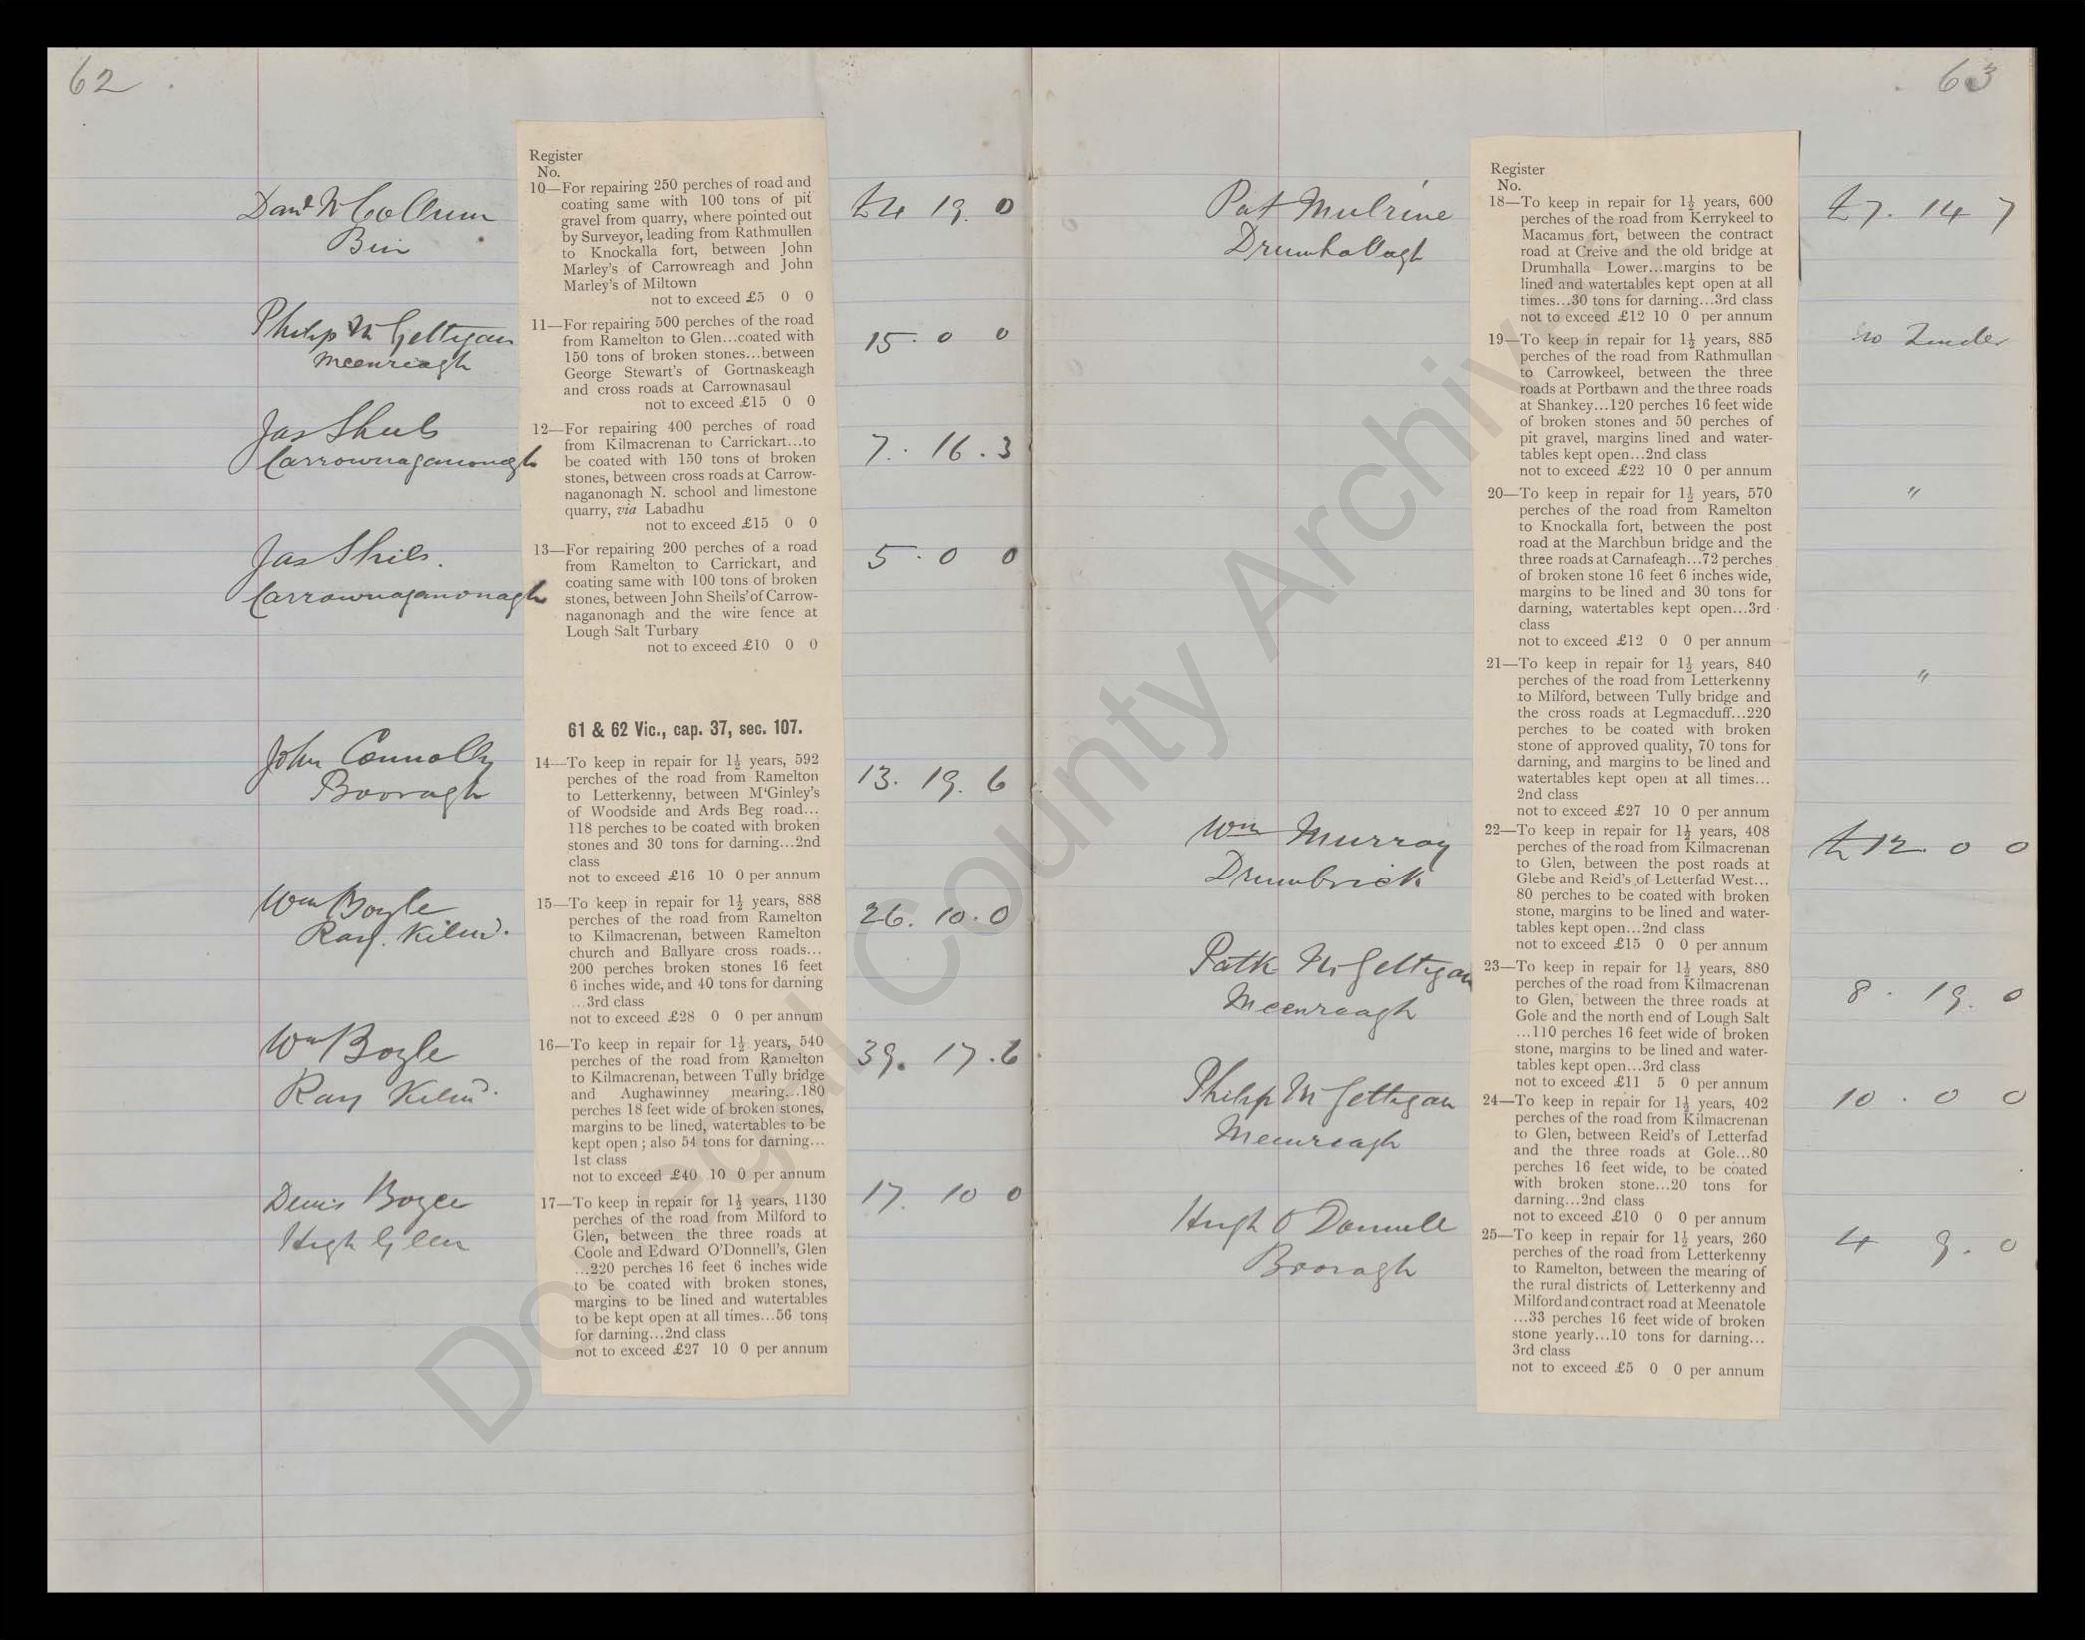 62
Register
No.
Danl McCollum
Bin
10—For repairing 250 perches of road and
coating same with 100 tons of pit
gravel from quarry, where pointed out
by Surveyor, leading from Rathmullen
to Knockalla fort, between John
Marley's of Carrowreagh and John
Marley's of Miltown
not to exceed £5 0 0
£4 19. 0
Philip McGettigan
Meenreagh
11—For repairing 500 perches of the road
from Ramelton to Glen...coated with
150 tons of broken stones...between
George Stewart's of Gortnaskeagh
and cross roads at Carrownasaul
not to exceed £15 0 0
15. 0 0
Jas Sheils
Carrownaganonagh
12—For repairing 400 perches of road
from Kilmacrenan to Carrickart...to
be coated with 150 tons of broken
stones, between cross roads at Carrow-
naganonagh N. school and limestone
quarry, via Labadhu
not to exceed £15 0 0
7. 16. 3
Jas Shiels.
Carrownaganonagh
13—For repairing 200 perches of a road
from Ramelton to Carrickart, and
coating same with 100 tons of broken
stones, between John Sheils' of Carrow-
naganonagh and the wire fence at
Lough Salt Turbary
not to exceed £10 0 0
5. 0 0
61 & 62 Vic., cap. 37, sec. 107.
John Connolly
Booragh
14—To keep in repair for 1½ years, 592
perches of the road from Ramelton
to Letterkenny, between M'Ginley's
of Woodside and Ards Beg road...
118 perches to be coated with broken
stones and 30 tons for darning...2nd
class
not to exceed £16 10 0 per annum
13. 19. 6
Wm Boyle
Ray. Kilmd.
15—To keep in repair for 1½ years, 888
perches of the road from Ramelton
to Kilmacrenan, between Ramelton
church and Ballyare cross roads...
200 perches broken stones 16 feet
6 inches wide, and 40 tons for darning
...3rd class
not to exceed £28 0 0 per annum
26. 10. 0
Wm Boyle
Ray Kilmd.
16—To keep in repair for 1½ years, 540
perches of the road from Ramelton
to Kilmacrenan, between Tully bridge
and Aughawinney mearing...180
perches 18 feet wide of broken stones,
margins to be lined, watertables to be
kept open; also 54 tons for darning...
1st class
not to exceed £40 10 0 per annum
39. 17. 6
Denis Boyce
High Glen
17—To keep in repair for 1½ years, 1130
perches of the road from Milford to
Glen, between the three roads at
Coole and Edward O'Donnell's, Glen
...220 perches 16 feet 6 inches wide
to be coated with broken stones,
margins to be lined and watertables
to be kept open at all times...56 tons
for darning...2nd class
not to exceed £27 10 0 per annum
17. 10 0
63
Register
No.
Pat Mulrine
Drumhallagh
18—To keep in repair for 1½ years, 600
perches of the road from Kerrykeel to
Macamus fort, between the contract
road at Creive and the old bridge at
Drumhalla Lower...margins to be
lined and watertables kept open at all
times...30 tons for darning...3rd class
not to exceed £12 10 0 per annum
£7. 14 7
19—To keep in repair for 1½ years, 885
perches of the road from Rathmullan
to Carrowkeel, between the three
roads at Portbawn and the three roads
at Shankey...120 perches 16 feet wide
of broken stones and 50 perches of
pit gravel, margins lined and water-
tables kept open...2nd class
not to exceed £22 10 0 per annum
no Tender
20—To keep in repair for 1½ years, 570
perches of the road from Ramelton
to Knockalla fort, between the post
road at the Marchbun bridge and the
three roads at Carnafeagh...72 perches
of broken stone 16 feet 6 inches wide,
margins to be lined and 30 tons for
darning, watertables kept open...3rd
class
not to exceed £12 0 0 per annum
"
21—To keep in repair for 1½ years, 840
perches of the road from Letterkenny
to Milford, between Tully bridge and
the cross roads at Legmacduff...220
perches to be coated with broken
stone of approved quality, 70 tons for
darning, and margins to be lined and
watertables kept open at all times...
2nd class
not to exceed £27 10 0 per annum
"
Wm Murray
Drumbrick
22—To keep in repair for 1½ years, 408
perches of the road from Kilmacrenan
to Glen, between the post roads at
Glebe and Reid's of Letterfad West...
80 perches to be coated with broken
stone, margins to be lined and water-
tables kept open...2nd class
not to exceed £15 0 0 per annum
£12. 0 0
Patk McGettigan
Meenreagh
23—To keep in repair for 1½ years, 880
perches of the road from Kilmacrenan
to Glen, between the three roads at
Gole and the north end of Lough Salt
...110 perches 16 feet wide of broken
stone, margins to be lined and water-
tables kept open...3rd class
not to exceed £11 5 0 per annum
8. 19. 0
Philip McGettigan
Meenreagh
24—To keep in repair for 1½ years, 402
perches of the road from Kilmacrenan
to Glen, between Reid's of Letterfad
and the three roads at Gole...80
perches 16 feet wide, to be coated
with broken stone...20 tons for
darning...2nd class
not to exceed £10 0 0 per annum
10. 0 0
Hugh O Donnell
Booragh
25—To keep in repair for 1½ years, 260
perches of the road from Letterkenny
to Ramelton, between the mearing of
the rural districts of Letterkenny and
Milford and contract road at Meenatole
...33 perches 16 feet wide of broken
stone yearly...10 tons for darning...
3rd class
not to exceed £5 0 0 per annum
4 9. 0
Donegal County Archives